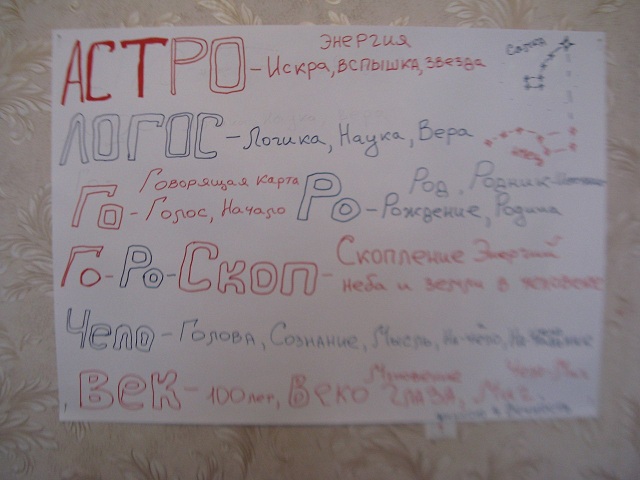 Энергия
АСТРО - Искра, вспышка, звезда
ЛОГОС - Логика, Наука, Вера
Говорящая карта
Го - Голос, Начало
Род, Родник
Ро - Рождение, Родина
Го-Ро-Скоп - Скопление Энергий
неба и земли в человеке
Чело - Голова, Сознание, Мысль
Мгновение
Век - 100 лет, Веко глаза, Миг